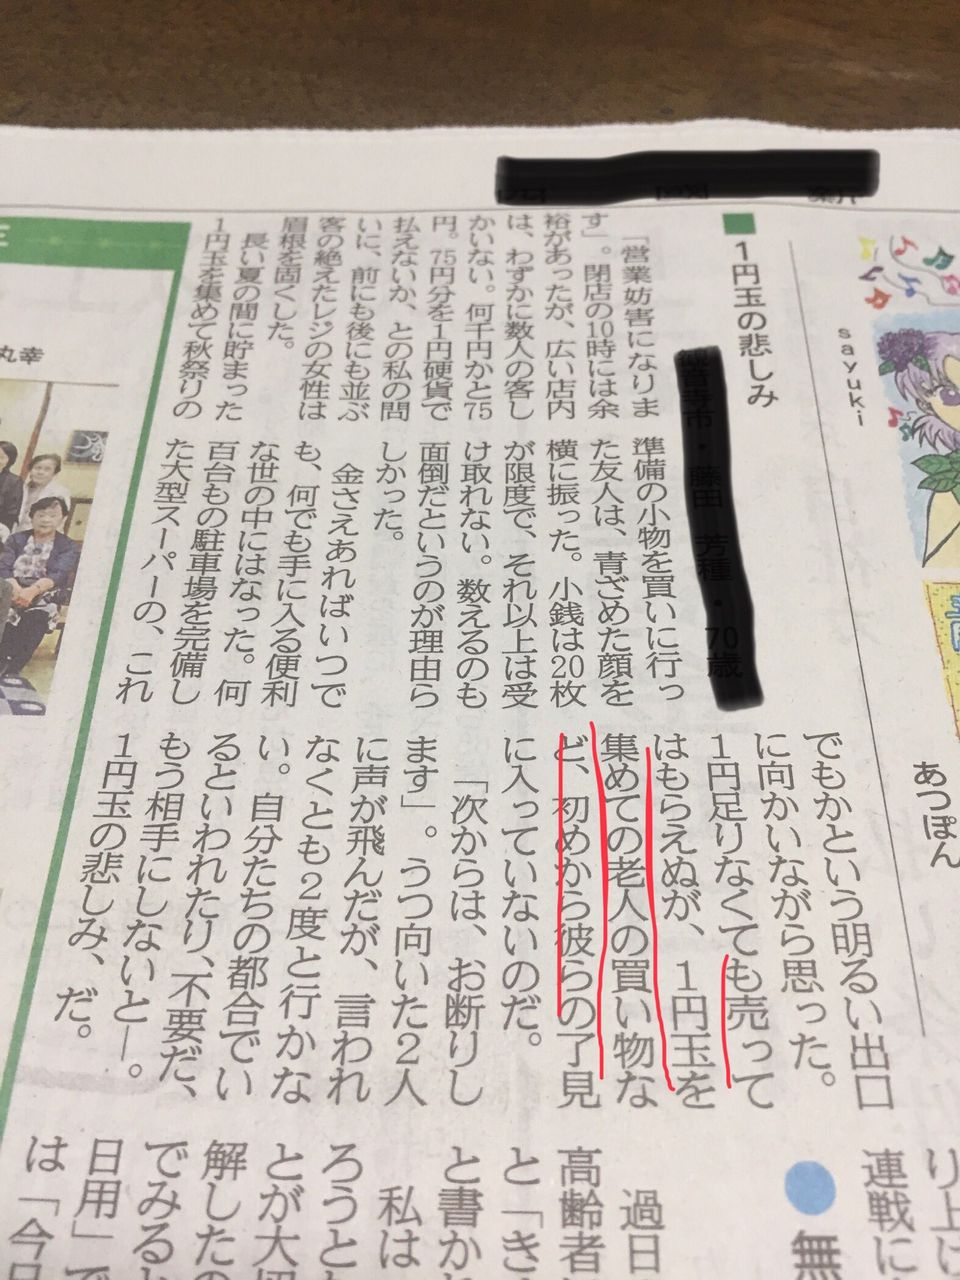 sayuki
あつぽん
1円玉の悲しみ
「営業妨害になりま
す」。閉店の10時には余
裕があったが、広い店内
は、わずかに数人の客し
かいない。何千円かと75
円。75円分を1円硬貨で
払えないか、との私の問
いに、前にも後にも並ぶ
客の絶えたレジの女性は
眉根を固くした。
長い夏の間に貯まった
1円玉を集めて秋祭りの
準備の小物を買いに行っ
た友人は、青ざめた顔を
横に振った。小銭は20枚
が限度で、それ以上は受
け取れない。数えるのも
面倒だというのが理由ら
しかった。
金さえあればいつで
も、何でも手に入る便利
な世の中にはなった。何
百台もの駐車場を完備し
た大型スーパーの、これ
でもかという明るい出口
に向かいながら思った。
1円足りなくても売って
はもらえぬが、1円玉を
集めての老人の買い物な
ど、初めから彼らの了見
に入っていないのだ。
「次からは、お断りし
ます」。うつ向いた2人
に声が飛んだが、言われ
なくとも2度と行かな
い。自分たちの都合でい
るといわれたり、不要だ、
もう相手にしないと―。
1円玉の悲しみ、だ。
丸幸
り上
連戦に
無
過日
高齢者
と「き
と書か
私は
ろうと
とが大
解した
でみる
日用」で
は「今